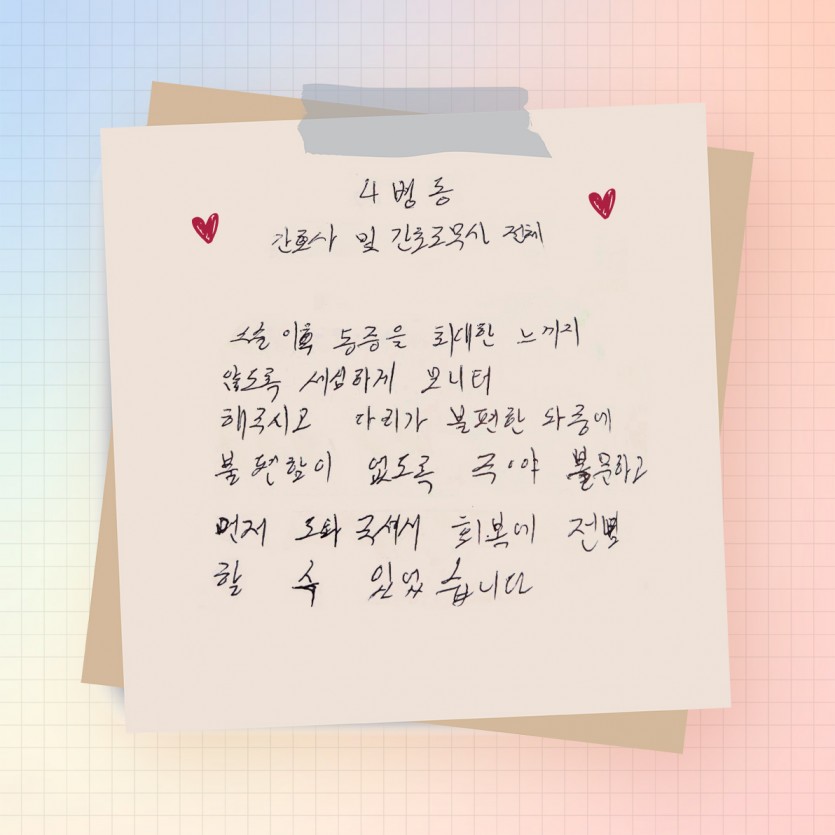 4병동
간호사 및 간호조무사 전체
수술 이후 통증을 최대한 느끼지
않도록 세심하게 모니터
해주시고 다리가 불편한 와중에
불편함이 없도록 주·야 불문하고
먼저 도와주셔서 회복에 전념
할 수 있었습니다